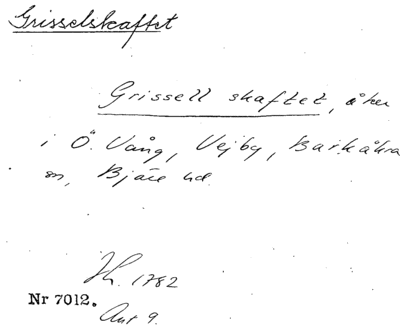 Grisselskaftet
Grissell skaftet, åker
i Ö. Vång, Vejby, Barkåkra
sn, Bjäre hd.
Jh. 1782
Nr 7012.
Akt 9.